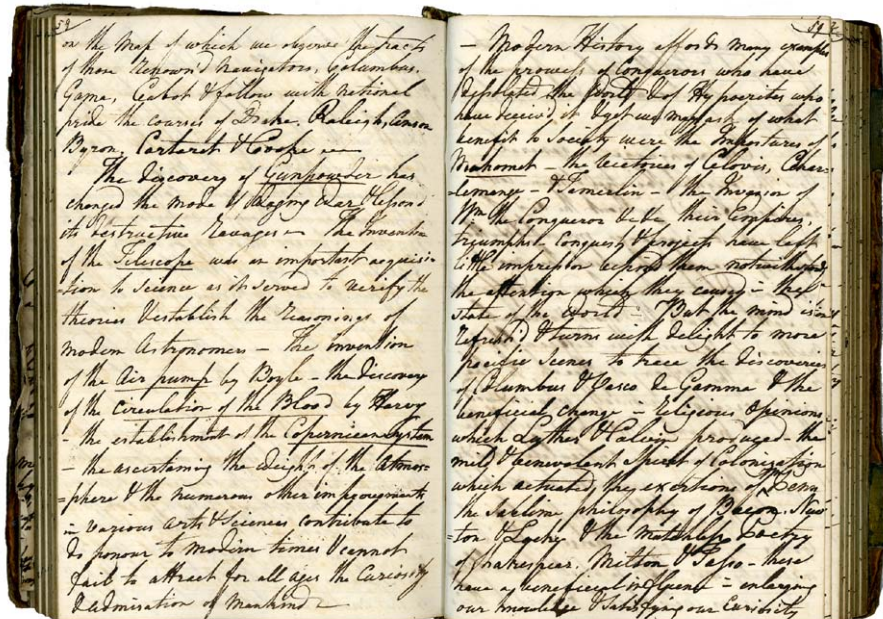 59
on the Map of which we observe the tracts
of those Renown'd Navigators, Columbus,
Gama, Cabot & follow with National
pride the courses of Drake, Raleigh, Anson
Byron, Carteret & Cooke
The discovery of Gunpowder has
changed the mode of Waging War & lessened
its destructive Ravages – The Invention
of the Telescope was an important acquisi-
-tion to Science as it served to verify the
theories & establish the reasonings of
modern Astronomers – The invention
of the Air pump by Boyle – the discovery
of the Circulation of the Blood by Harvey
– the establishment of the Copernican System
– the ascertaining the Weight of the Atmos-
-phere & the numerous other improvements
in various Arts & Sciences contribute to
do honour to modern times & cannot
fail to attract for all ages the Curiosity
& admiration of Mankind –
– Modern History affords many examples
of the prowess of Conquerors who have
desolated the World & of Hypocrites who
have deceived it & yet we may ask of what
benefit to Society were the Impostures of
Mahomet – the Victories of Clovis, Char-
-lemange – & Temerlin – the Invasion of
Wm. the Conqueror &c &c their Empires,
triumphs Conquests & projects have left
little impression behind them notwithstanding
the attention which they caused in the
State of the World – But the mind is
refresh'd & turns with delight to more
pacific scenes to trace the discoveries
of Columbus & Vasco de Gamma & the
beneficial change in religious Opinions
which Luther & Calvin produced – the
mild & benevolent spirit of Colonization
which actuated the exertions of Penn
the sublime philosophy of Bacon, New-
-ton & Locke & the matchless Poetry
of Shakespear, Milton & Tasso – these
have a beneficial influence in enlarging
our knowledge & satisfying our Curiosity